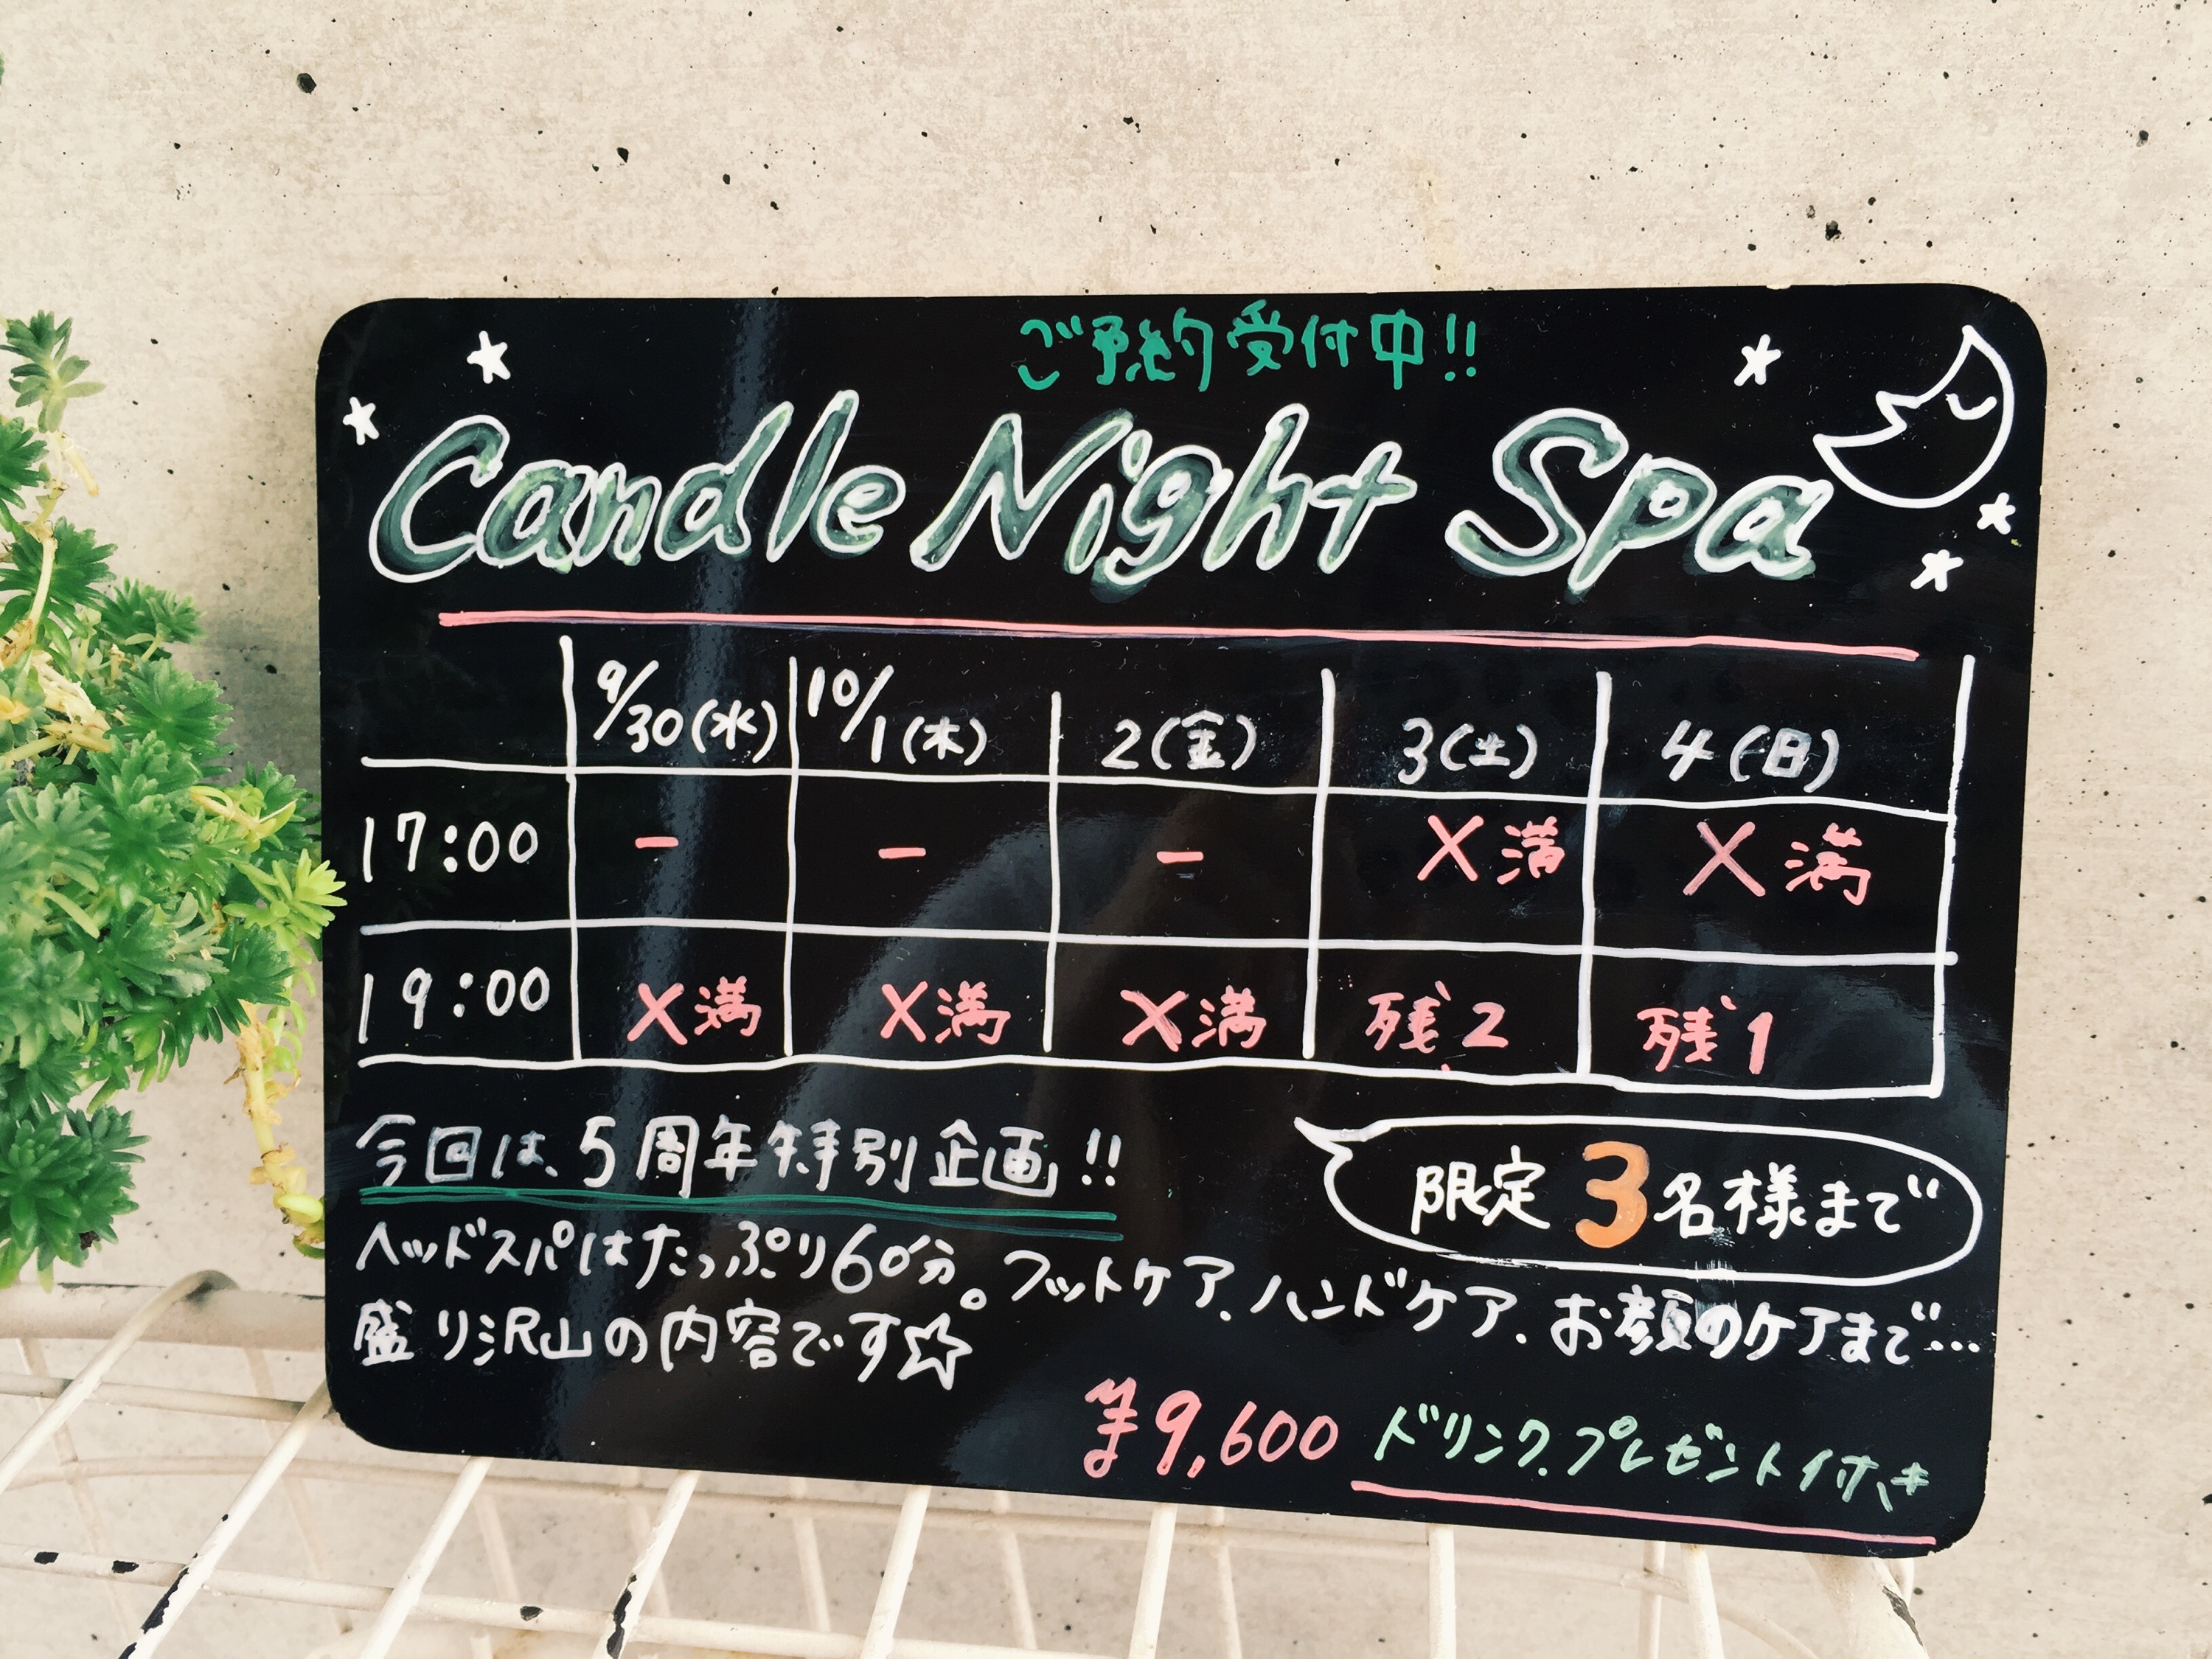 ご予約受付中!!
Candle Night Spa
9/30(水) 10/1(木) 2(金) 3(土) 4(日)
17:00 - - - X満 X満
19:00 X満 X満 X満 残2 残1
今回は、5周年特別企画!!
限定3名様まで
ヘッドスパはたっぷり60分。フットケア、ハンドケア、お顔のケアまで…
盛り沢山の内容です☆
¥9,600 ドリンク、プレゼント付き